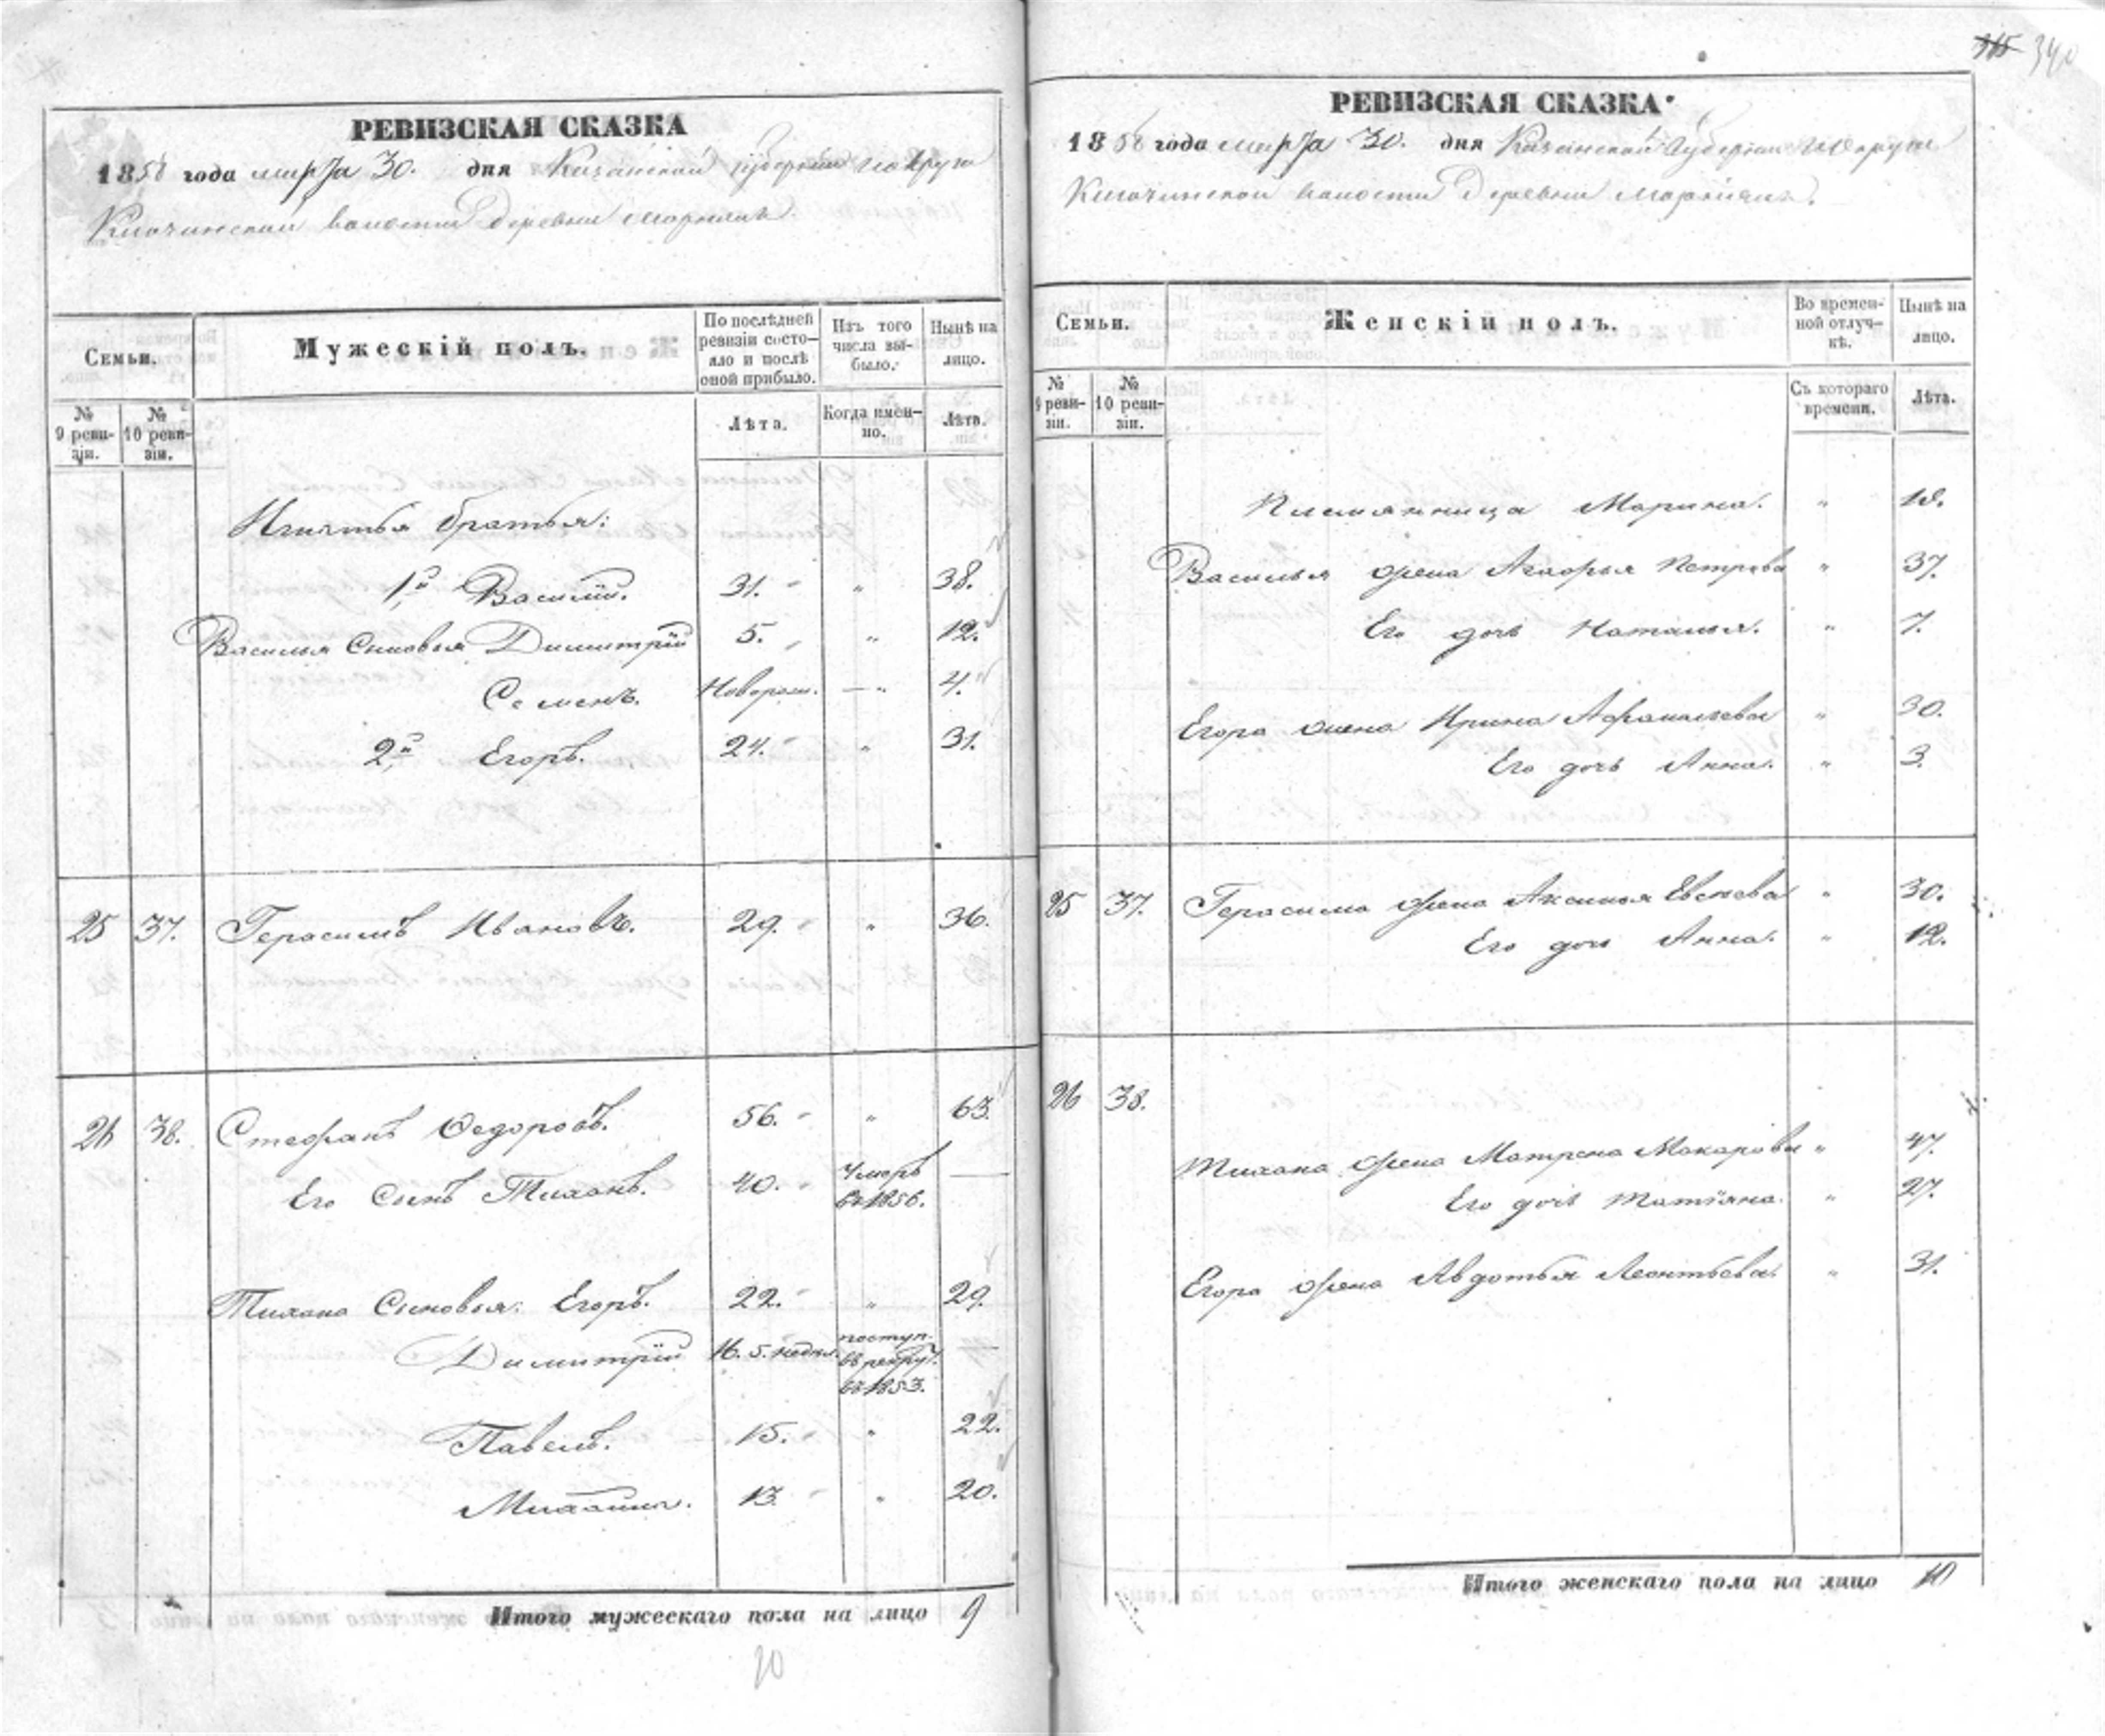 РЕВИЗСКАЯ СКАЗКА
1858 года марта 30. дня Казанской губерніи и округи
волости деревни
Семьи.
Мужескій полъ.
По послѣдней ревизіи состояло и послѣ оной прибыло.
Изъ того числа выбыло.
Нынѣ на лицо.
№ 9 ревизіи.
№ 10 ревизіи.
Лѣта.
Когда именно.
Лѣта.
Игнатья братья:
1й Василій. 31. " 38.
Василья сыновья Димитрій 5. " 12.
Семенъ. Новорож. — " 4.
2й Егоръ. 24. " 31.
25 37. Герасимъ Ивановъ. 29. " 36.
26 38. Стефанъ Ѳедоровъ. 56. " 63.
Его сынъ Тихонъ. 40. Умеръ въ 1856. —
Тихона сыновья: Егоръ. 22. " 29.
Димитрій 16. 5. недѣл. поступ. въ рекрут. въ 1853. —
Павелъ. 15. " 22.
Михаила. 13. " 20.
Итого мужескаго пола на лицо 9
20
315 340
РЕВИЗСКАЯ СКАЗКА.
1858 года марта 30. дня Казанской губерніи и округи
волости деревни
Семьи.
Женскій полъ.
Во временной отлучкѣ.
Нынѣ на лицо.
№ 9 ревизіи.
№ 10 ревизіи.
Съ котораго времени.
Лѣта.
Племянница Марина. " 18.
Василья жена Агафья Петрова " 37.
Его дочь Наталья. " 7.
Егора жена Ирина Афанасьева " 30.
Его дочь Анна. " 3.
25 37. Герасима жена Аксинья Евсѣева " 30.
Его дочь Анна. " 12.
26 38.
Тихона жена Матрена Макарова " 47.
Его дочь Татіяна. " 27.
Егора жена Авдотья Леонтьева. " 31.
Итого женскаго пола на лицо 10